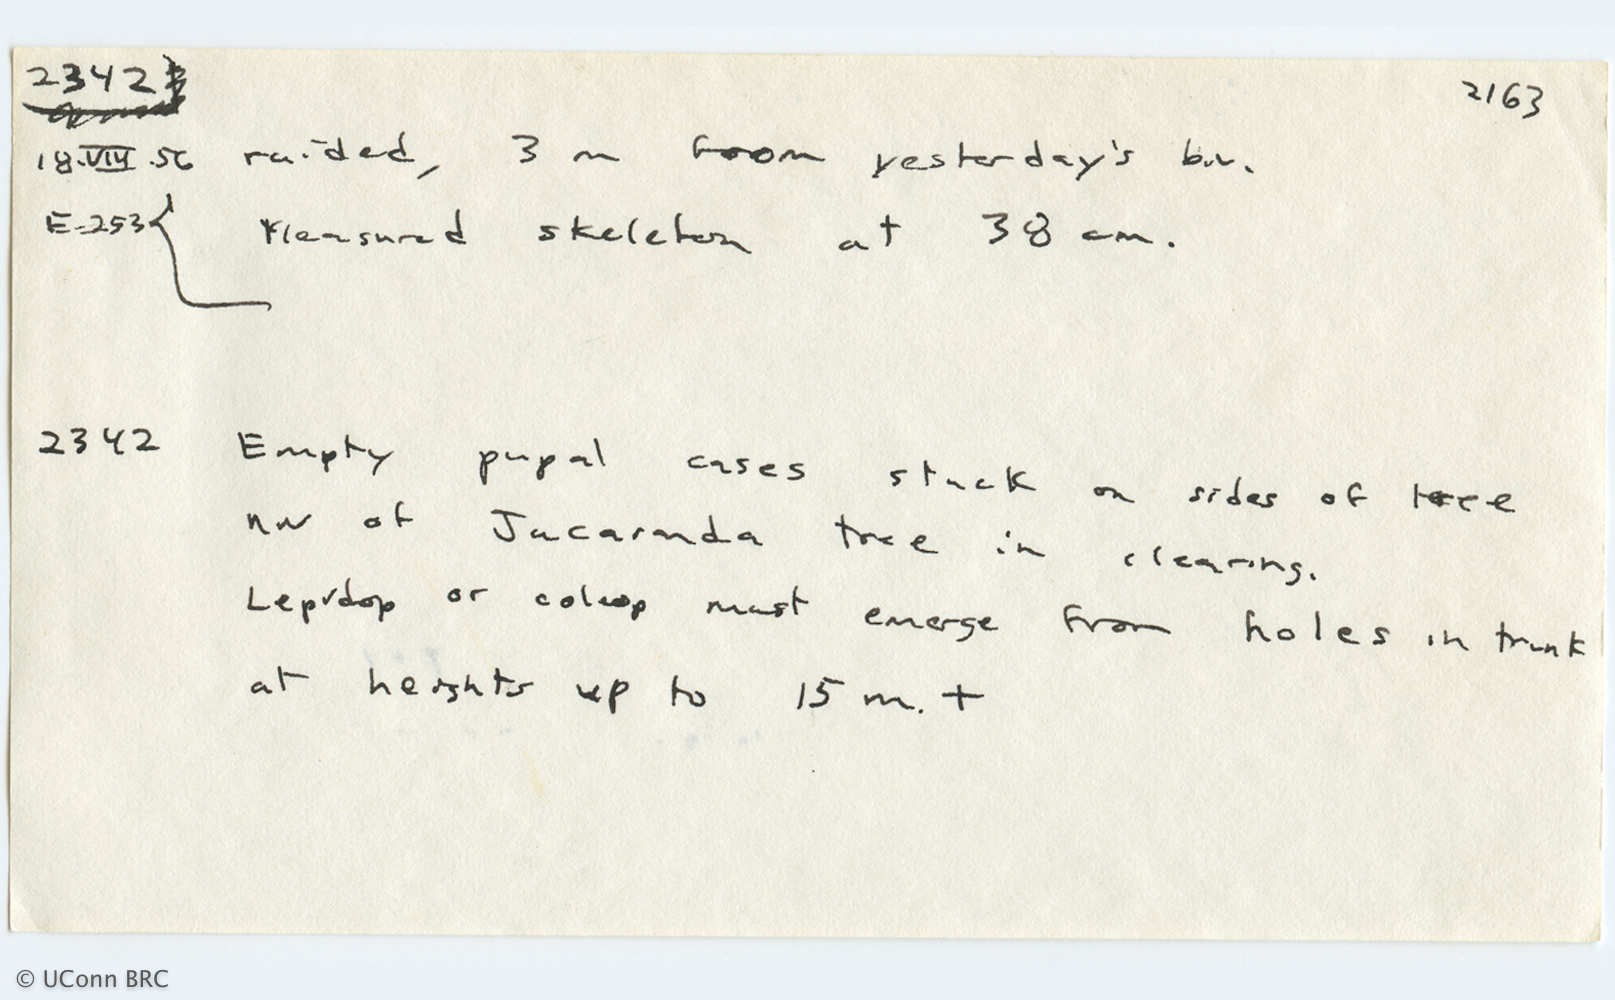 2342
2163
18.VIII.56 raided, 3 m from yesterday's biv.
E-253 Measured skeleton at 38 cm.
2342 Empty pupal cases stuck on sides of tree
nw of Jacaranda tree in clearing.
Lepidop or coleop must emerge from holes in trunk
at heights up to 15 m. +
© UConn BRC